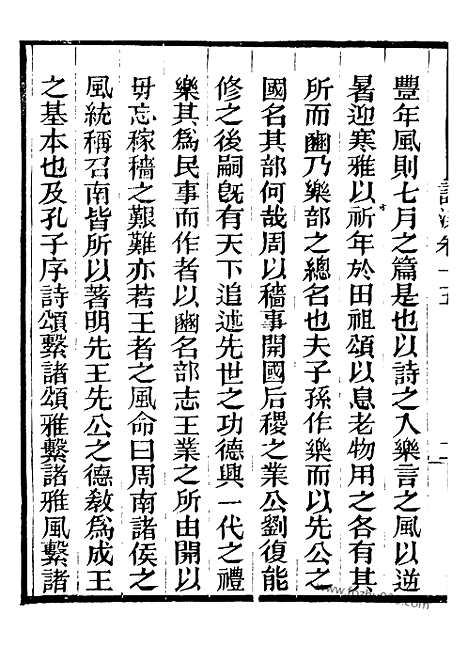 豐年風則七月之篇是也以詩之入樂言之風以逆
暑迎寒雅以祈年於田祖頌以息老物用之各有其
所而豳乃樂部之總名也夫子孫作樂而以先公之
國名其部何哉周以穡事開國后稷之業公劉復能
修之後嗣旣有天下追述先世之功德興一代之禮
樂其爲民事而作者以豳名部志王業之所由開以
毋忘稼穡之艱難亦若王者之風命曰周南諸侯之
風統稱召南皆所以著明先王先公之德敎爲成王
之基本也及孔子序詩頌繫諸頌雅繫諸雅風繫諸